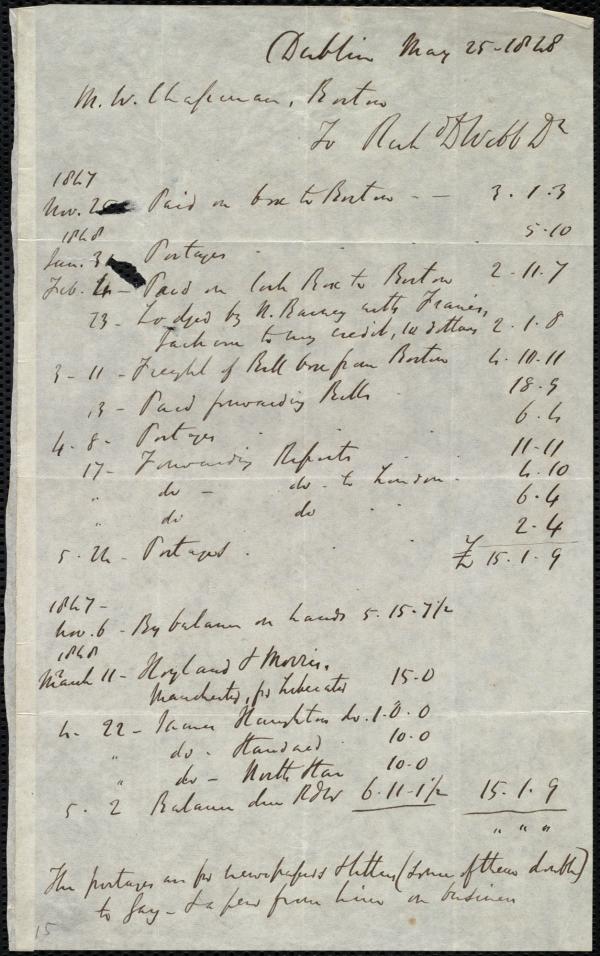 Dublin May 25 - 1848
M. W. Chapman, Boston
To Rich d D Webb Dr
1847
Nov. 25 - Paid on box to Boston - - 3 . 1 . 3
1848
Jan. 3 Postages . . . 5 - 10
Feb. 4 - Paid on Cork Box to Boston 2 - 11 . 7
23 - Lodged by N. Barney with Francis
Jackson to my credit, 10 dollars 2 . 1 . 8
3 - 11 - Freight of Bell box from Boston 4 . 10 . 11
13 - Paid forwarding Bells . 18 - 9
4 . 8 - Postages . . . 6 . 4
17 - Forwarding Reports . . 11 - 11
" do - do - to London . 4 . 10
" do do . 6 . 4
5 . 24 - Postages . . . 2 . 4
£ 15 . 1 . 9
1847 -
Nov. 6 - By balance on hands 5 . 15 . 7 1/2
1848
March 11 - Hoyland & Morris,
Manchester, for Liberator 15 . 0
4 . 22 - James Haughton do . 1 . 0 . 0
" do - Standard . 10 . 0
" do - North Star 10 - 0
5 . 2 Balance due RDW 6 . 11 . 1 1/2 15 . 1 . 9
" " "
The postages are for newspapers & letters (some of them double)
to Gay - & a few from him on business
15